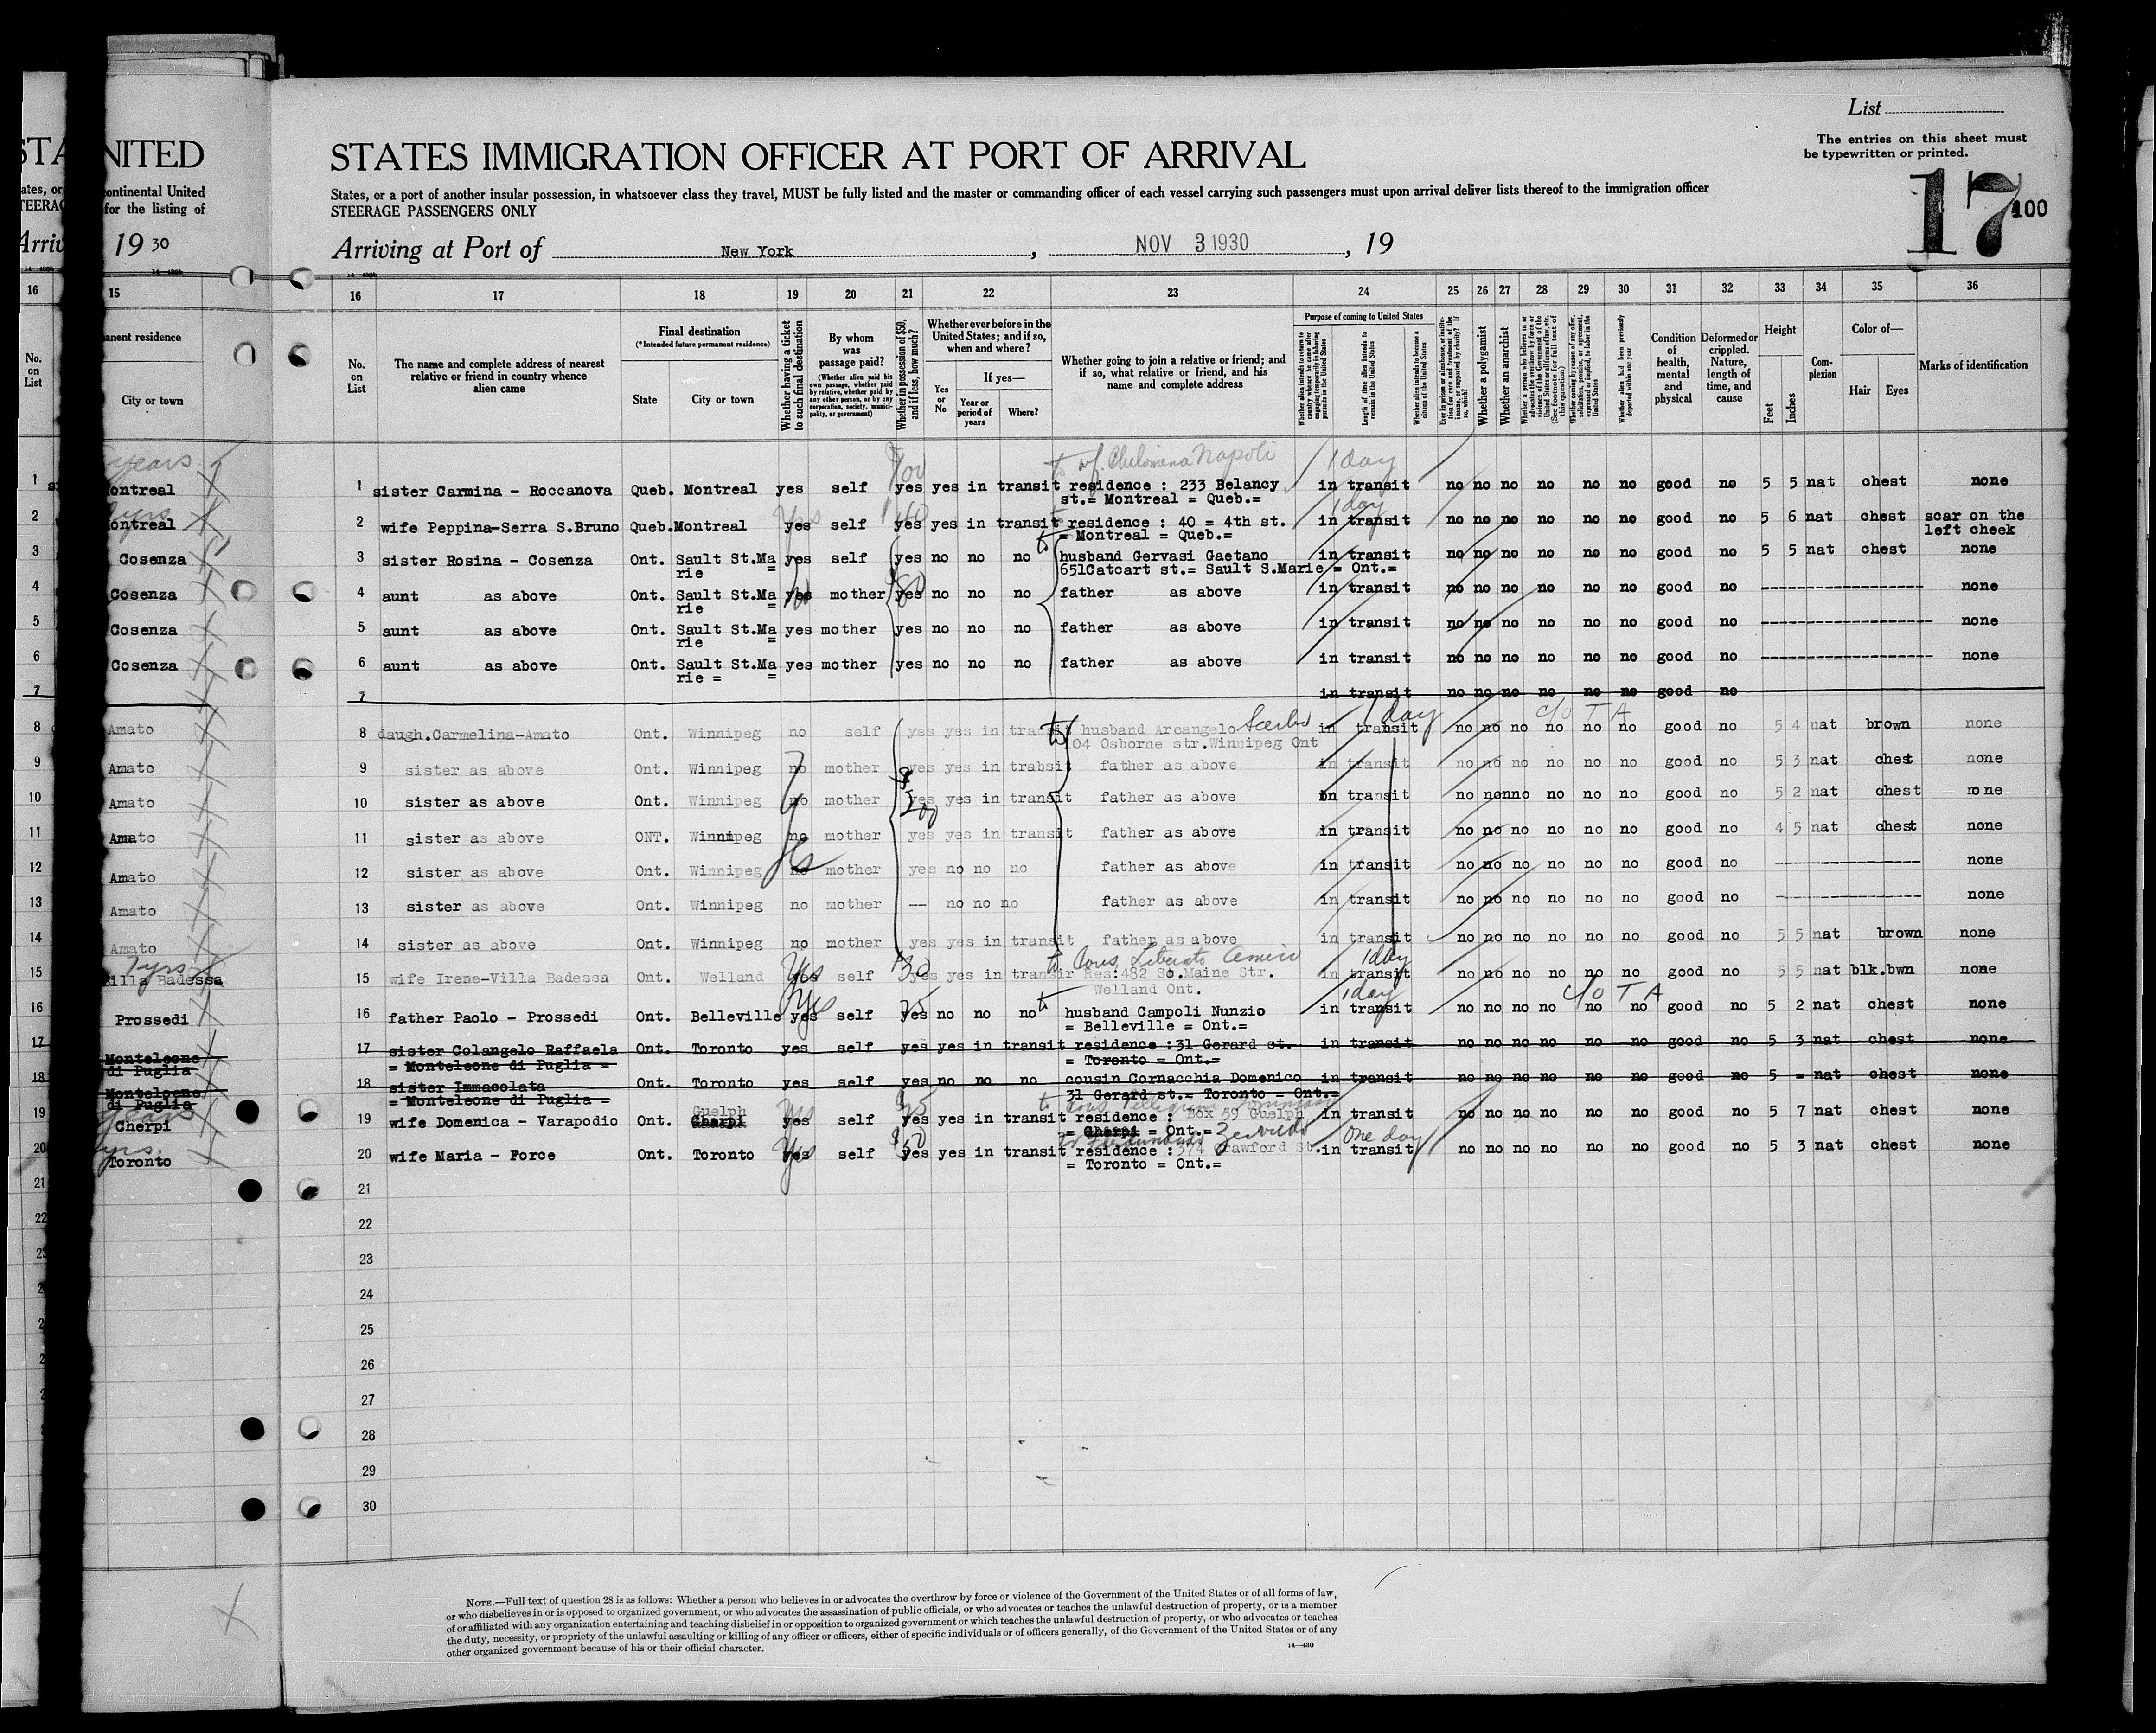 List
The entries on this sheet must
be typewritten or printed.
STA
NITED
STATES IMMIGRATION OFFICER AT PORT OF ARRIVAL
ates, or
continental United
States, or a port of another insular possession, in whatsoever class they travel, MUST be fully listed and the master or commanding officer of each vessel carrying such passengers must upon arrival deliver lists thereof to the immigration officer
TEERAG
for the listing of
STEERAGE PASSENGERS ONLY
17 100
Arriv
19 30
Arriving at Port of New York, NOV 3 1930, 19
16 15 16 17 18 19 20 21 22 23 24 25 26 27 28 29 30 31 32 33 34 35 36
No. on List
anent residence
City or town
No. on List
The name and complete address of nearest relative or friend in country whence alien came
Final destination
(*Intended future permanent residence)
State City or town
Whether having a ticket to such final destination
By whom was passage paid?
(Whether alien paid his own passage, whether paid by relative, whether paid by any other person, or by any corporation, society, municipality, or government)
Whether in possession of $50, and if less, how much?
Whether ever before in the United States; and if so, when and where?
Yes or No
If yes—
Year or period of years
Where?
Whether going to join a relative or friend; and if so, what relative or friend, and his name and complete address
Purpose of coming to United States
Length of time alien intends to remain in the United States
Whether a polygamist
Whether an anarchist
Condition of health, mental and physical
Deformed or crippled. Nature, length of time, and cause
Height
Feet Inches
Complexion
Color of—
Hair Eyes
Marks of identification
years
wf. Philomena Napoli 1 day
1 ontreal 1 sister Carmina - Roccanova Queb. Montreal yes self yes yes in transit residence : 233 Belancy in transit no no no no no no good no 5 5 nat chest none
st.= Montreal = Queb.=
yrs 1 day
2 ontreal 2 wife Peppina-Serra S.Bruno Queb.Montreal yes self yes yes in transit residence : 40 = 4th st. in transit no no no no no no good no 5 6 nat chest scar on the
= Montreal = Queb.= left cheek
3 Cosenza 3 sister Rosina - Cosenza Ont. Sault St.Ma yes self yes no no no to husband Gervasi Gaetano in transit no no no no no no good no 5 5 nat chest none
rie = 651Catcart st.= Sault S.Marie = Ont.=
4 Cosenza 4 aunt as above Ont. Sault St.Ma yes mother yes no no no father as above in transit no no no no no no good no ---- none
rie =
5 Cosenza 5 aunt as above Ont. Sault St.Ma yes mother yes no no no father as above in transit no no no no no no good no ---- none
rie
6 Cosenza 6 aunt as above Ont. Sault St.Ma yes mother yes no no no father as above in transit no no no no no no good no ---- none
rie = =
7 7 in transit no no no no no no good no
1 day c/o T A
8 Amato 8 daugh.Carmelina-Amato Ont. Winnipeg no self yes yes in transit to husband Arcangelo in transit no no no no no no good no 5 4 nat brown none
104 Osborne str.Winnipeg Ont
9 Amato 9 sister as above Ont. Winnipeg no mother yes yes in trabsit father as above in transit no no no no no no good no 5 3 nat chest none
$200
10 Amato 10 sister as above Ont. Winnipeg no mother yes yes in transit father as above on transit no nonno no no no good no 5 2 nat chest none
11 Amato 11 sister as above ONT. Winnipeg no mother yes yes in transit father as above in transit no no no no no no good no 4 5 nat chest none
yes
12 Amato 12 sister as above Ont. Winnipeg no mother yes no no no father as above in transit no no no no no no good no ---- none
13 Amato 13 sister as above Ont. Winnipeg no mother -- no no no father as above in transit no no no no no no good no ---- none
14 Amato 14 sister as above Ont. Winnipeg no mother yes yes in transit father as above in transit no no no no no no good no 5 5 nat brown none
7 yrs Yes 30 to Cous. Liberato 1 day
15 illa Badessa 15 wife Irene-Villa Badessa Ont. Welland yes self yes yes in transir Res:482 So.Maine Str. in transit no no no no no no good no 5 5 nat blk.bwn none
Welland Ont.
yes 25 1 day c/o T A
16 Prossedi 16 father Paolo - Prossedi Ont. Belleville yes self yes no no no to husband Campoli Nunzio in transit no no no no no no good no 5 2 nat chest none
= Belleville = Ont.=
17 Monteleone 17 sister Colangelo Raffaela Ont. Toronto yes self yes yes in transit residence :31 Gerard st. in transit no no no no no no good no 5 3 nat chest none
di Puglia = Monteleone di Puglia = = Toronto = Ont.=
18 Monteleone 18 sister Immacolata Ont. Toronto yes self yes no no no cousin Cornacchia Domenico in transit no no no no no no good no 5 = nat chest none
di Puglia = Monteleone di Puglia = 31 Gerard st.= Toronto = Ont.=
Guelph Yes
19 Cherpi 19 wife Domenica - Varapodio Ont. Cherpi yes self yes yes in transit residence : Box 59 Guelph in transit no no no no no no good no 5 7 nat chest none
= Cherpi = Ont.=
yrs. Yes $50 One day
20 Toronto 20 wife Maria - Force Ont. Toronto yes self yes yes in transit residence :374 Crawford St. in transit no no no no no no good no 5 3 nat chest none
= Toronto = Ont.=
21 21
22 22
23 23
24
25
26
27
28
29
30
NOTE.—Full text of question 28 is as follows: Whether a person who believes in or advocates the overthrow by force or violence of the Government of the United States or of all forms of law,
or who disbelieves in or is opposed to organized government, or who advocates the assassination of public officials, or who advocates or teaches the unlawful destruction of property, or is a member
of or affiliated with any organization entertaining and teaching disbelief in or opposition to organized government or which teaches the unlawful destruction of property, or who advocates or teaches
the duty, necessity, or propriety of the unlawful assaulting or killing of any officer or officers, either of specific individuals or of officers generally, of the Government of the United States or of any
other organized government because of his or their official character.
14—430